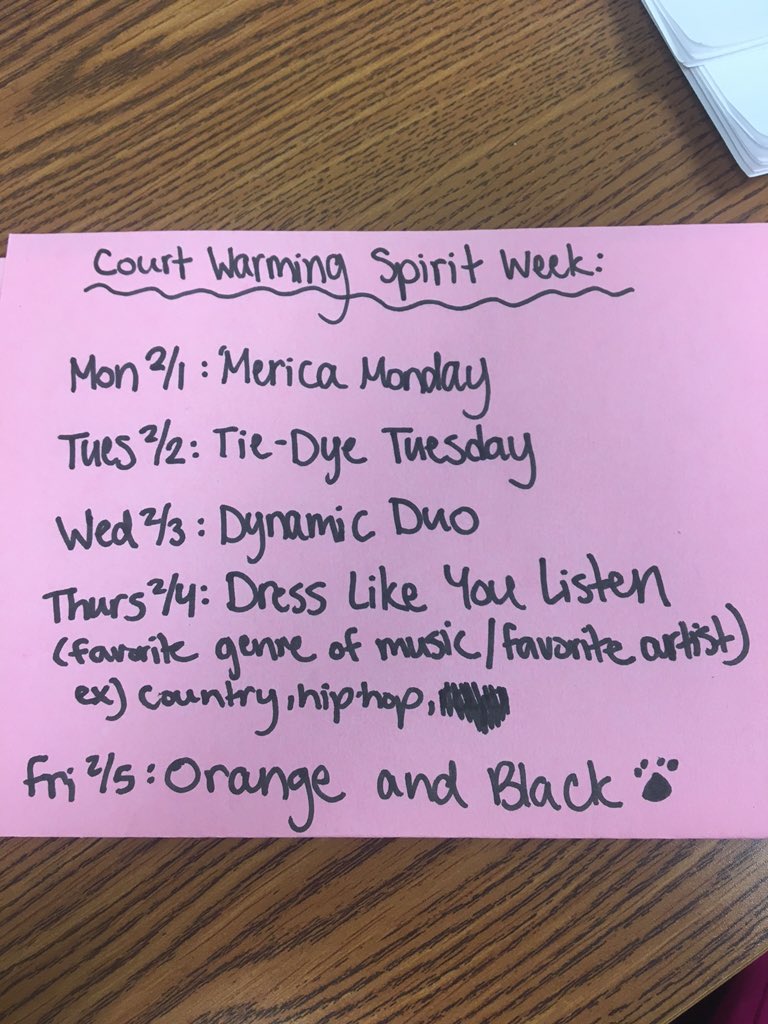 Court Warming Spirit Week:
Mon 2/1: 'Merica Monday
Tues 2/2: Tie-Dye Tuesday
Wed 2/3: Dynamic Duo
Thurs 2/4: Dress Like You Listen
(favorite genre of music/favorite artist)
ex) country, hip hop,
Fri 2/5: Orange and Black